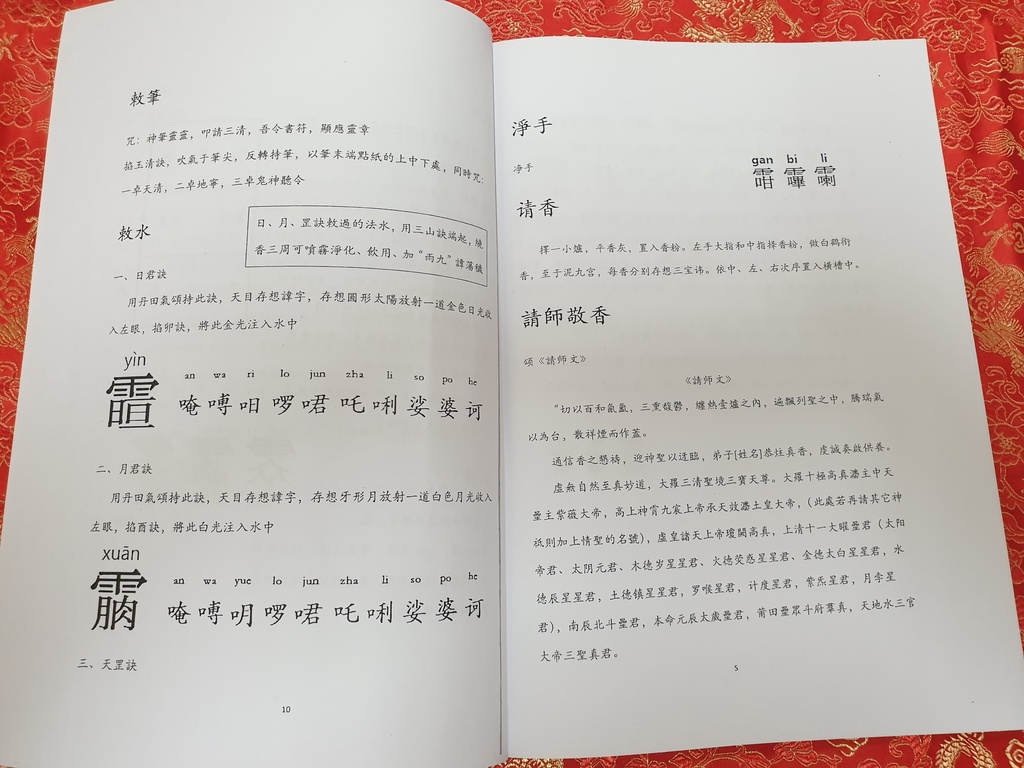 敕筆
咒：神筆靈靈，叩請三清，吾令書符，顯應靈章
掐玉清訣，吹氣于筆尖，反轉持筆，以筆末端點紙的上中下處，同時咒：
一卓天清，二卓地寧，三卓鬼神聽令
敕水
日、月、罡訣敕過的法水，用三山訣端起，繞
香三周可噴霧淨化、飲用、加“雨九”諱蕩穢
一、日君訣
用丹田氣頌持此訣，天目存想諱字，存想圓形太陽放射一道金色日光收
入左眼，掐卯訣，將此金光注入水中
yìn
an wa ri lo jun zha li so po he
唵嗗啰喖吒唎娑婆诃
二、月君訣
用丹田氣頌持此訣，天目存想諱字，存想牙形月放射一道白色月光收入
左眼，掐酉訣，將此白光注入水中
xuān
an wa yue lo jun zha li so po he
三、天罡訣
10
淨手
净手
gan bi li
请香
擇一小爐，平香灰，置入香粉。左手大指和中指择香粉，做白鹤衔
香，至于泥丸宫，每香分别存想三宝讳。依中、左、右次序置入横槽中。
請師敬香
頌《請師文》
《請師文》
“切以百和氤氳，三熏馥鬱，纏熱壺爐之內，遍飄列聖之中，騰瑞氣
以為台，散祥煙而作蓋。
通信香之懇禱，迎神聖以逑臨，弟子[姓名]恭炷真香，虔誠奏啟供養。
虛無自然至真妙道，大羅三清聖境三寶天尊。大羅十極高真
主中天
主紫薇大帝，高上神霄九宸上帝承天效
土皇大帝，（此處若再請其它神
祇則加上情聖的名號），虛皇諸天上帝瓊闕高真，上清十一大曜
君（太阳
帝君、太阴元君、木德岁星星君、火德荧惑星星君、金德太白星星君，水
德辰星星君，土德镇星星君，罗喉星君，计度星君，紫炁星君，月孛星
君），南辰北斗
君，本命元辰太歲
君，莆田
眾斗府羣真，天地水三官
大帝三聖真君。
5